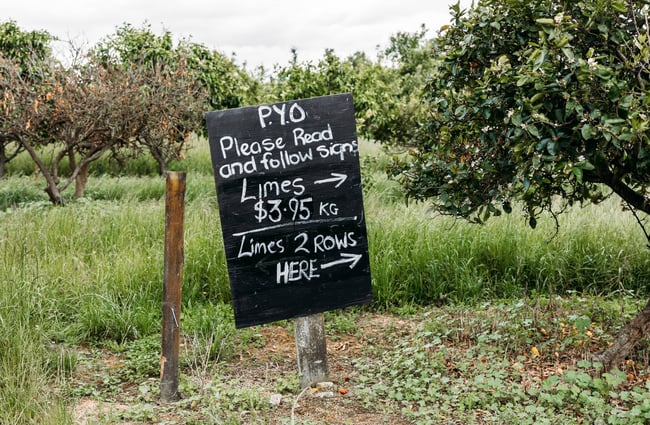 P.Y.O.
Please Read
and follow signs
Limes →
$3.95 KG
Limes 2 ROWS
HERE →